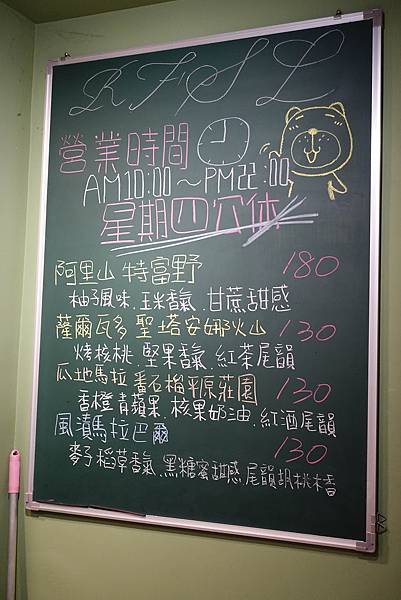 KFSL
營業時間
AM10:00～PM22:00
星期四公休
阿里山 特富野 180
柚子風味.玉米香氣.甘蔗甜感
薩爾瓦多 聖塔安娜火山 130
烤核桃.堅果香氣.紅茶尾韻
瓜地馬拉 番石榴平原莊園 130
香橙青蘋果.核果奶油.紅酒尾韻
風漬馬拉巴爾 130
麥子稻草香氣.黑糖蜜甜感.尾韻胡桃木香